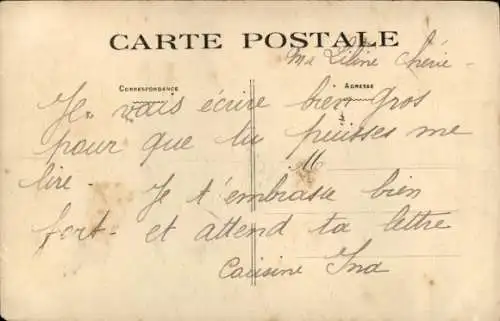 CARTE POSTALE
Ma Liline chérie -
CORRESPONDANCE
ADRESSE
Je vais écrire bien gros
pour que tu puisses me
lire - Je t'embrasse bien
fort - et attend ta lettre
M
Cousine Ina